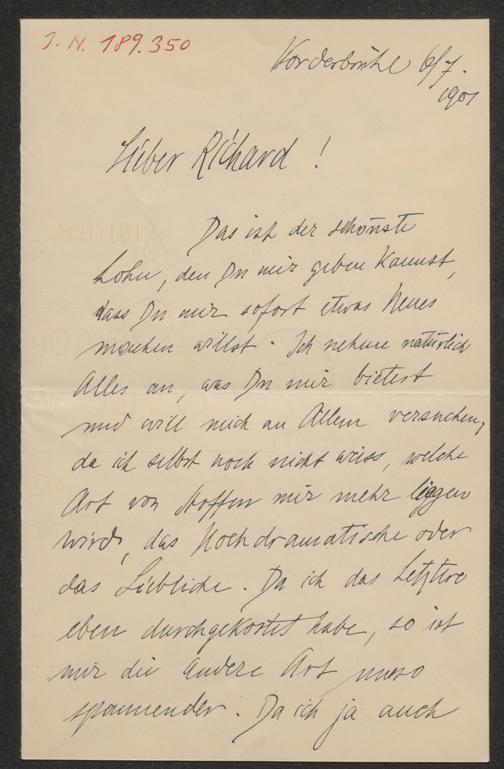 J. N. 189.350
Vorderbrühl 6/7.
1901
Lieber Richard !
Das ist der schönste
Lohn, den Du mir geben kannst,
dass Du mir sofort etwas Neues
machen willst. Ich nehme natürlich
Alles an, was Du mir bietest
und will mich an Allem versuchen,
da ich selbst noch nicht weiss, welche
Art von Stoffen mir mehr liegen
wird, das Hochdramatische oder
das Liebliche. Da ich das Letztere
eben durchgekostet habe, so ist
mir die andere Art umso
spannender. Da ich ja auch